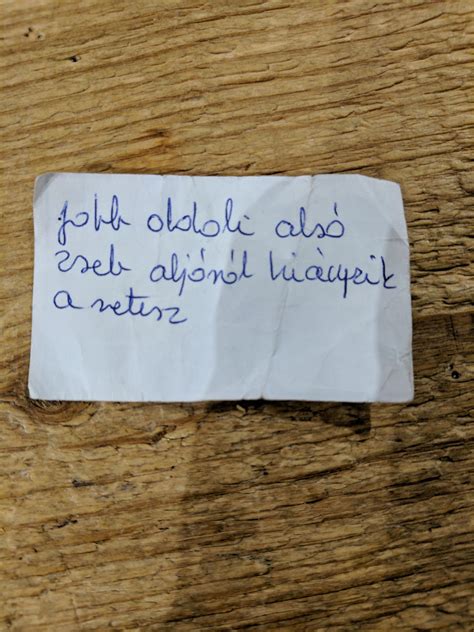 jobb oldali alsó
zseb aljáról hiányzik
a retesz